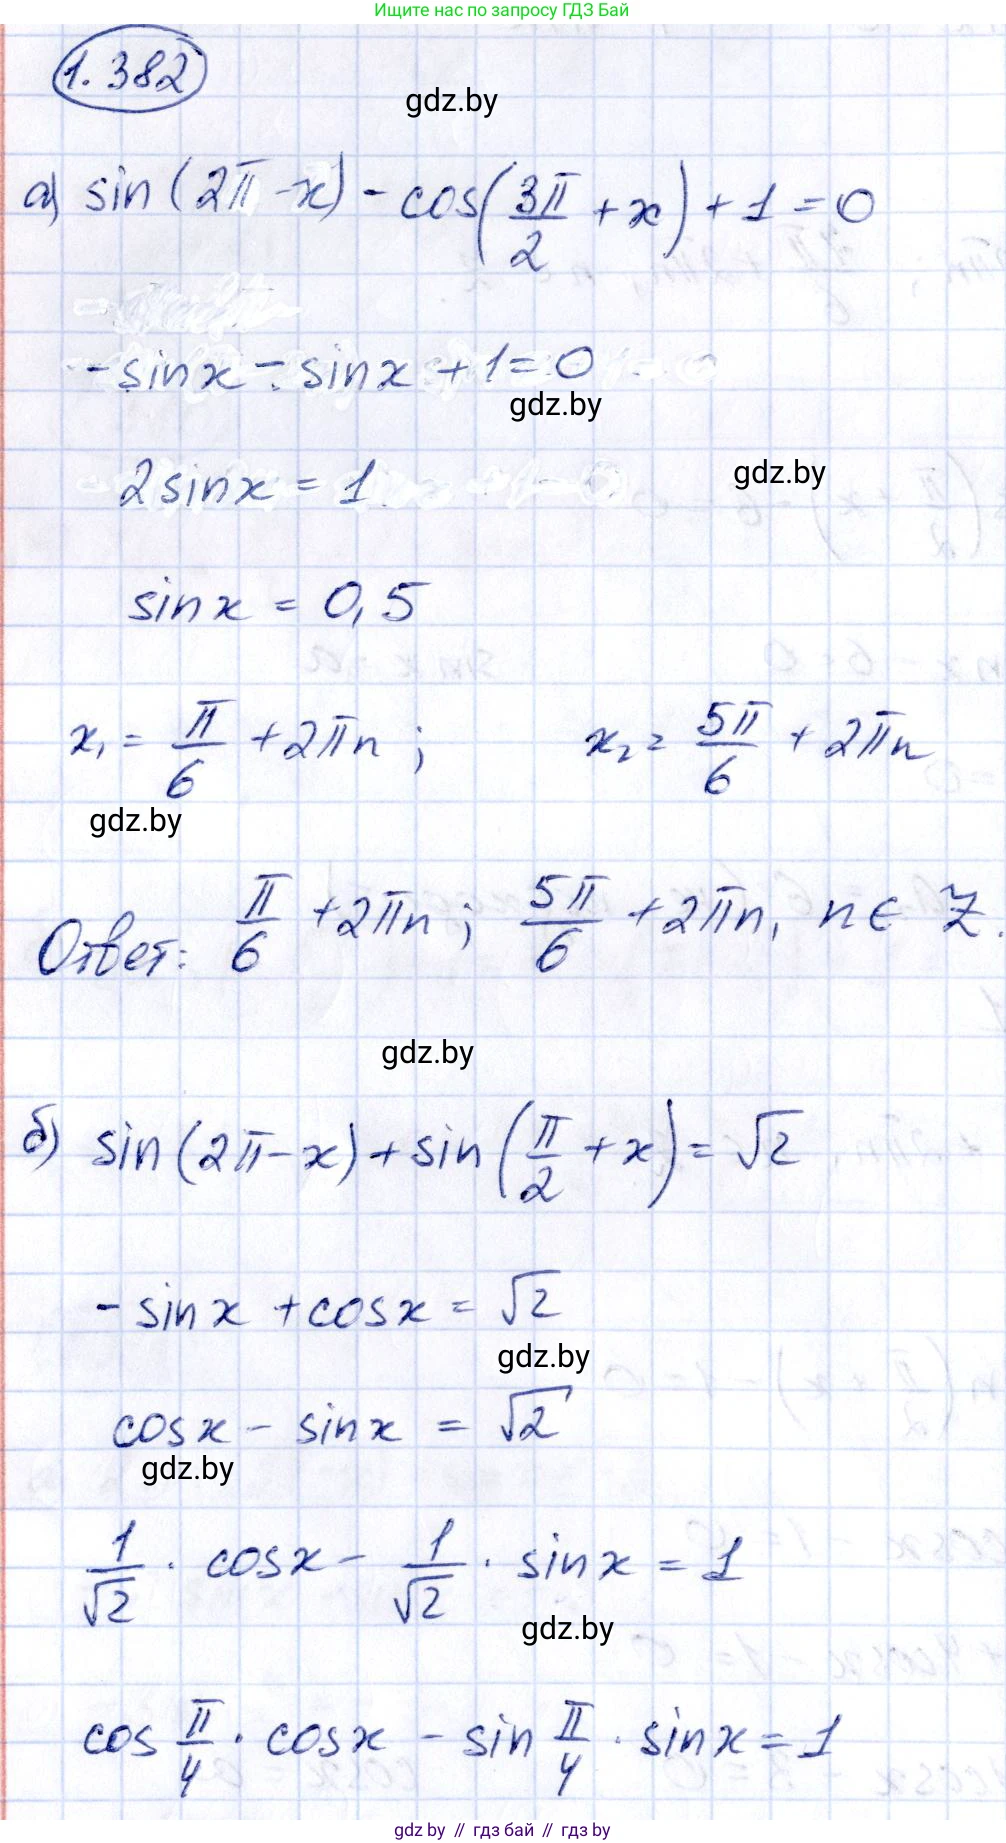 Ищите нас по запросу ГДЗ Бай
1.382
gdz.by
а) sin(2π-x) - cos(3π/2 + x) + 1 = 0
-sinx - sinx + 1 = 0
gdz.by
gdz.by
2sinx = 1
sinx = 0,5
x₁ = π/6 + 2πn ; x₂ = 5π/6 + 2πn
gdz.by
Ответ: π/6 + 2πn; 5π/6 + 2πn, n ∈ Z.
gdz.by
б) sin(2π-x) + sin(π/2 + x) = √2
-sinx + cosx = √2
gdz.by
cosx - sinx = √2
gdz.by
1/√2 · cosx - 1/√2 · sinx = 1
gdz.by
cos π/4 · cosx - sin π/4 · sinx = 1
gdz.by // гдз бай // гдз by